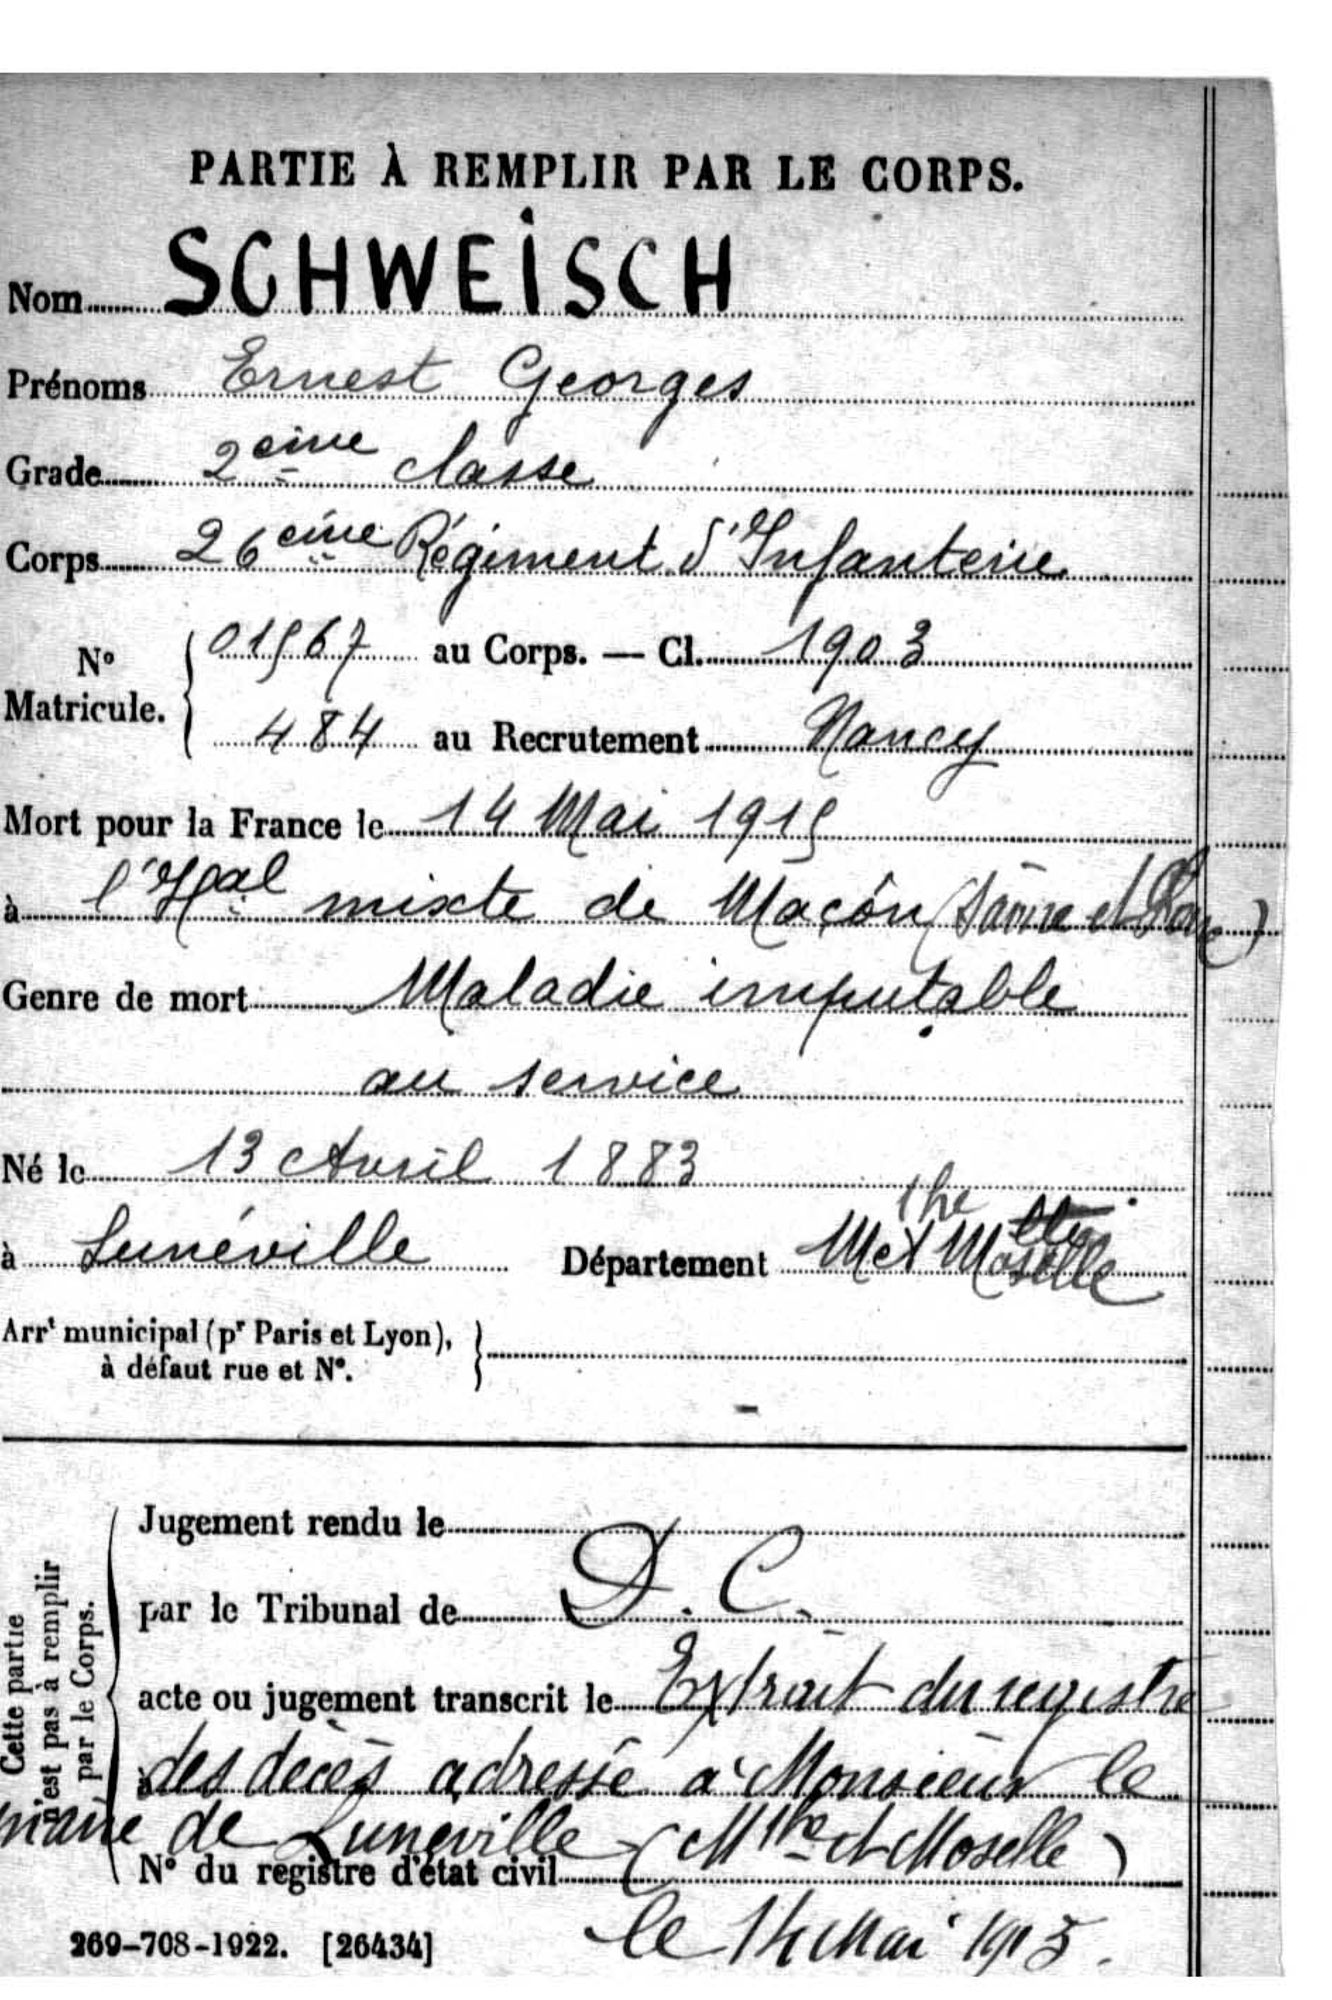 PARTIE À REMPLIR PAR LE CORPS.
Nom SCHWEISCH
Prénoms Ernest Georges
Grade 2eme classe
Corps 26eme Régiment d'Infanterie
N° Matricule. 01567 au Corps. — Cl. 1903
484 au Recrutement Nancy
Mort pour la France le 14 Mai 1915
à l'Hal mixte de Maçôn (Saône et Loire)
Genre de mort Maladie imputable
au service
Né le 13 Avril 1883
à Lunéville Département Mthe et Moselle
Arrt municipal (pr Paris et Lyon),
à défaut rue et N°.
Cette partie
n'est pas à remplir
par le Corps.
Jugement rendu le
par le Tribunal de D. C.
acte ou jugement transcrit le Extrait du registre
à des décès adressé à Monsieur le
maire de Lunéville (Mthe et Moselle)
N° du registre d'état civil
le 14 Mai 1915.
269-708-1922. [26434]